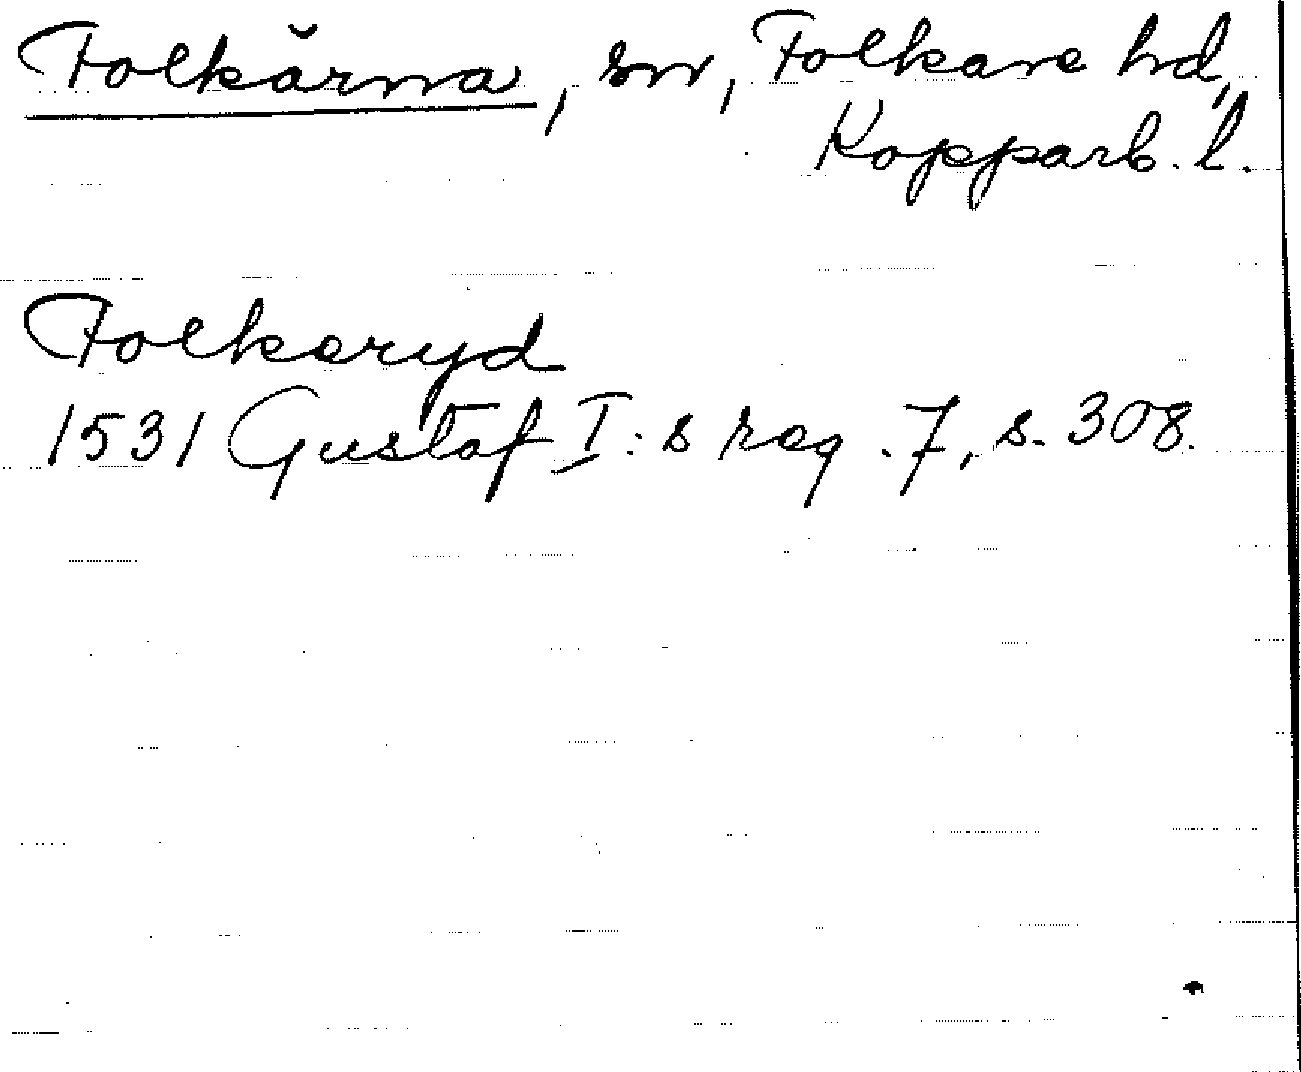 Folkärna, sn, Folkare hd,
Kopparb. l.
Folkeryd
1531 Gustaf I:s reg. 7, s. 308.